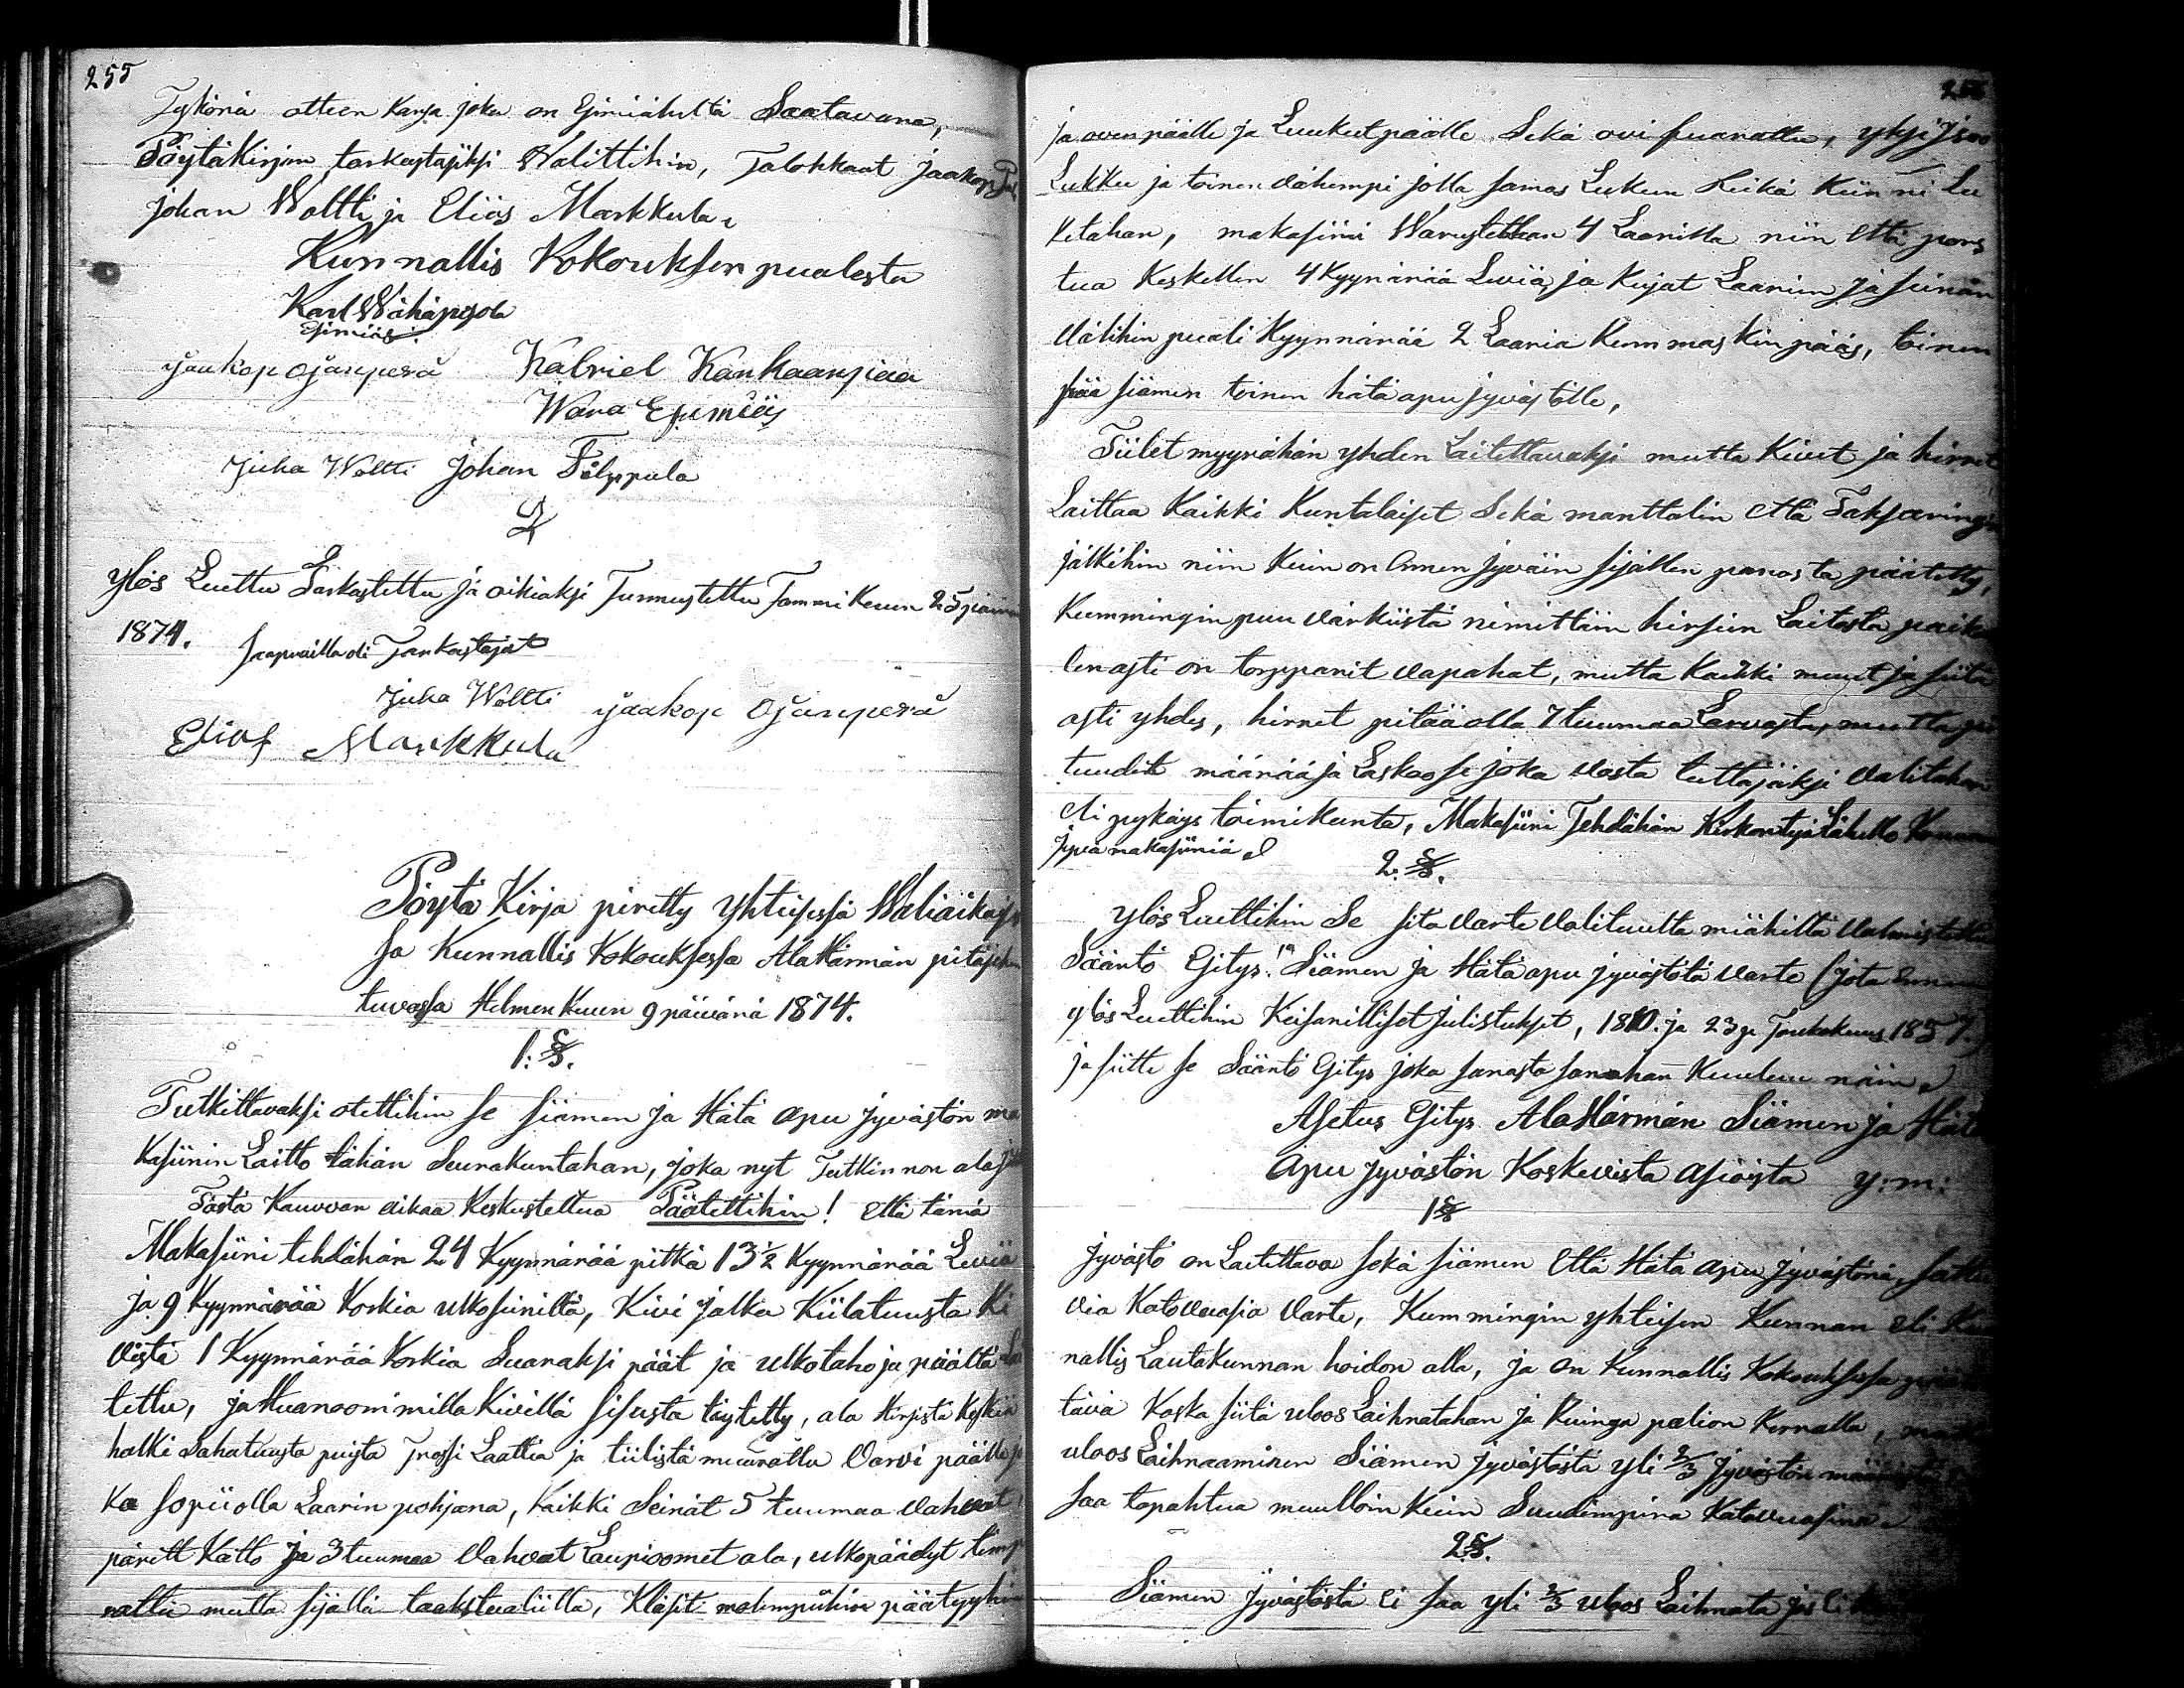 255
Tykönä otteen kansa joka on Esimiäheltä Saatavana,
Pöytäkirjan tarkastajiksi Walittihin, Talokkaat Jaakop
Johan Woltti ja Eliias Markkula.
Kunnallis Kokouksen puolesta
Karl Wähäpjola
Esimiäs.
Jaakop Ojanperä Kabriel Kankaanpää
Wara Esimiäs
Juha Woltti Johan Filppula
ylös Luettu Tarkastettu ja oikiaksi Tunnustettu Tammi Kuun 25 päivänä
1874. Saapuvilla oli Tarkastajat
Juha Woltti Jaakop Ojanperä
Elias Markkula
Pöytä Kirja piretty Yhteisessä Waliaikaises
sa Kunnallis Kokouksessa AlaHärmän pitäjän
tuvassa Helmen Kuun 9 päivänä 1874.
1: §.
Tutkittavaksi otettihin se siämen ja Hätä apu jyvästön ma
kasiinin Laitto tähän Seurakuntahan, joka nyt Tutkinnon alas
Tästä Kauvvan aikaa Keskusteltua Päätettihin! että tämä
Makasiini tehdähän 24 Kyynnärää pitkä 13½ Kyynnärää Leviä
ja 9 Kyynnärää Korkia ulkosiniltä, Kivi jalka Kiilatuusta Ki
vistä 1 Kyynnärää Korkia Suaraksi päät ja ulkotaho ja päältä
tettu, ja Huanoommilla Kivillä sisusta täytetty, ala Hirsistä keskiä
halki Sahatuusta puista Trossi Laattia ja tiilistä muurattu Varvi päälle jo
ka sopii olla Laarin pohjana, Kaikki Seinät 5 tuumaa vahvat,
pärett Katto ja 3 tuumaa Vahvat Laupioomet ala, ulkopäädyt timp
rattu mutta sisällä taakstualiilla, Klasit molempiihin päätyyhin
ja oven päälle ja Luukut päälle Sekä ovi suarallu, yksi Isoo
Lukku ja toinen vähempi jolla samas Lukun Reikä Kiinni Lu
kitahan, makasiini Warustethan 4 Laarilla niin että pors
tua Keskellen 4 Kyynärää Leviä, ja Kujat Laarien ja seinän
välihin puali Kyynnärää 2 Laaria Kummaskin pääs, toinen
pää siämen toinen hätäapu jyvästölle,
Tiilet myyrähän yhden Laitettavaksi mutta Kivet ja hirret
Laittaa Kaikki Kuntalaiset Sekä manttalin että Taksäringin
jälkihin niin Kuin on Ennen jyväin sisällen panosta päätetty,
Kummingin puu värkiistä nimittäin hirsiin Laitosta paika
lenasti on torpparit vapahat, mutta Kaikki muut ja siitä
asti yhdes, hirret pitää olla 7 tuumaa Larvasta, mutta pi
tuudet määrää ja Laskoo se joka vasta tuttajaksi valitahan
eli pykäys toimikunta, Makasiini Tehdähän Kirkontyä Lähelle Kunnan
Jyvä makasiiniä
2. §.
ylös Luettihin Se sitä varte valituutta miähiltä Valmistettu
Sääntö Esitys. Siämen ja Hätä apu jyvästöä varte (jota ennen
ylös Luettihin Keisarilliset julistukset, 1810. ja 23 p. Toukokuus 1857.
ja siitte se Sääntö Esitys joka sanasta sanahan Kuuluu näin
Asetus Esitys AlaHärmän Siämen ja Hätä
Apu jyvästön Koskevista asioista y:m:
1 §
Jyvästö on Laitettava sekä siämen että Hätä apu jyvästönä, sattu
via Katovuasia varte, Kummingin yhteisen Kunnan eli Kun
nallis Lautakunnan hoidon alla, ja on Kunnallis Kokouksessa
tävä Koska siitä uloos Laihnatahan ja Kuinga palion Kerralla,
uloos Laihnaaminen Siämen jyvästöstä yli ⅔ jyvästön määrästä
saa tapahtua muulloin kuin Suudimpina Katovuasina
2 §.
Siämen jyvästöstä ei saa yli ⅔ uloos Laihnata jos ei